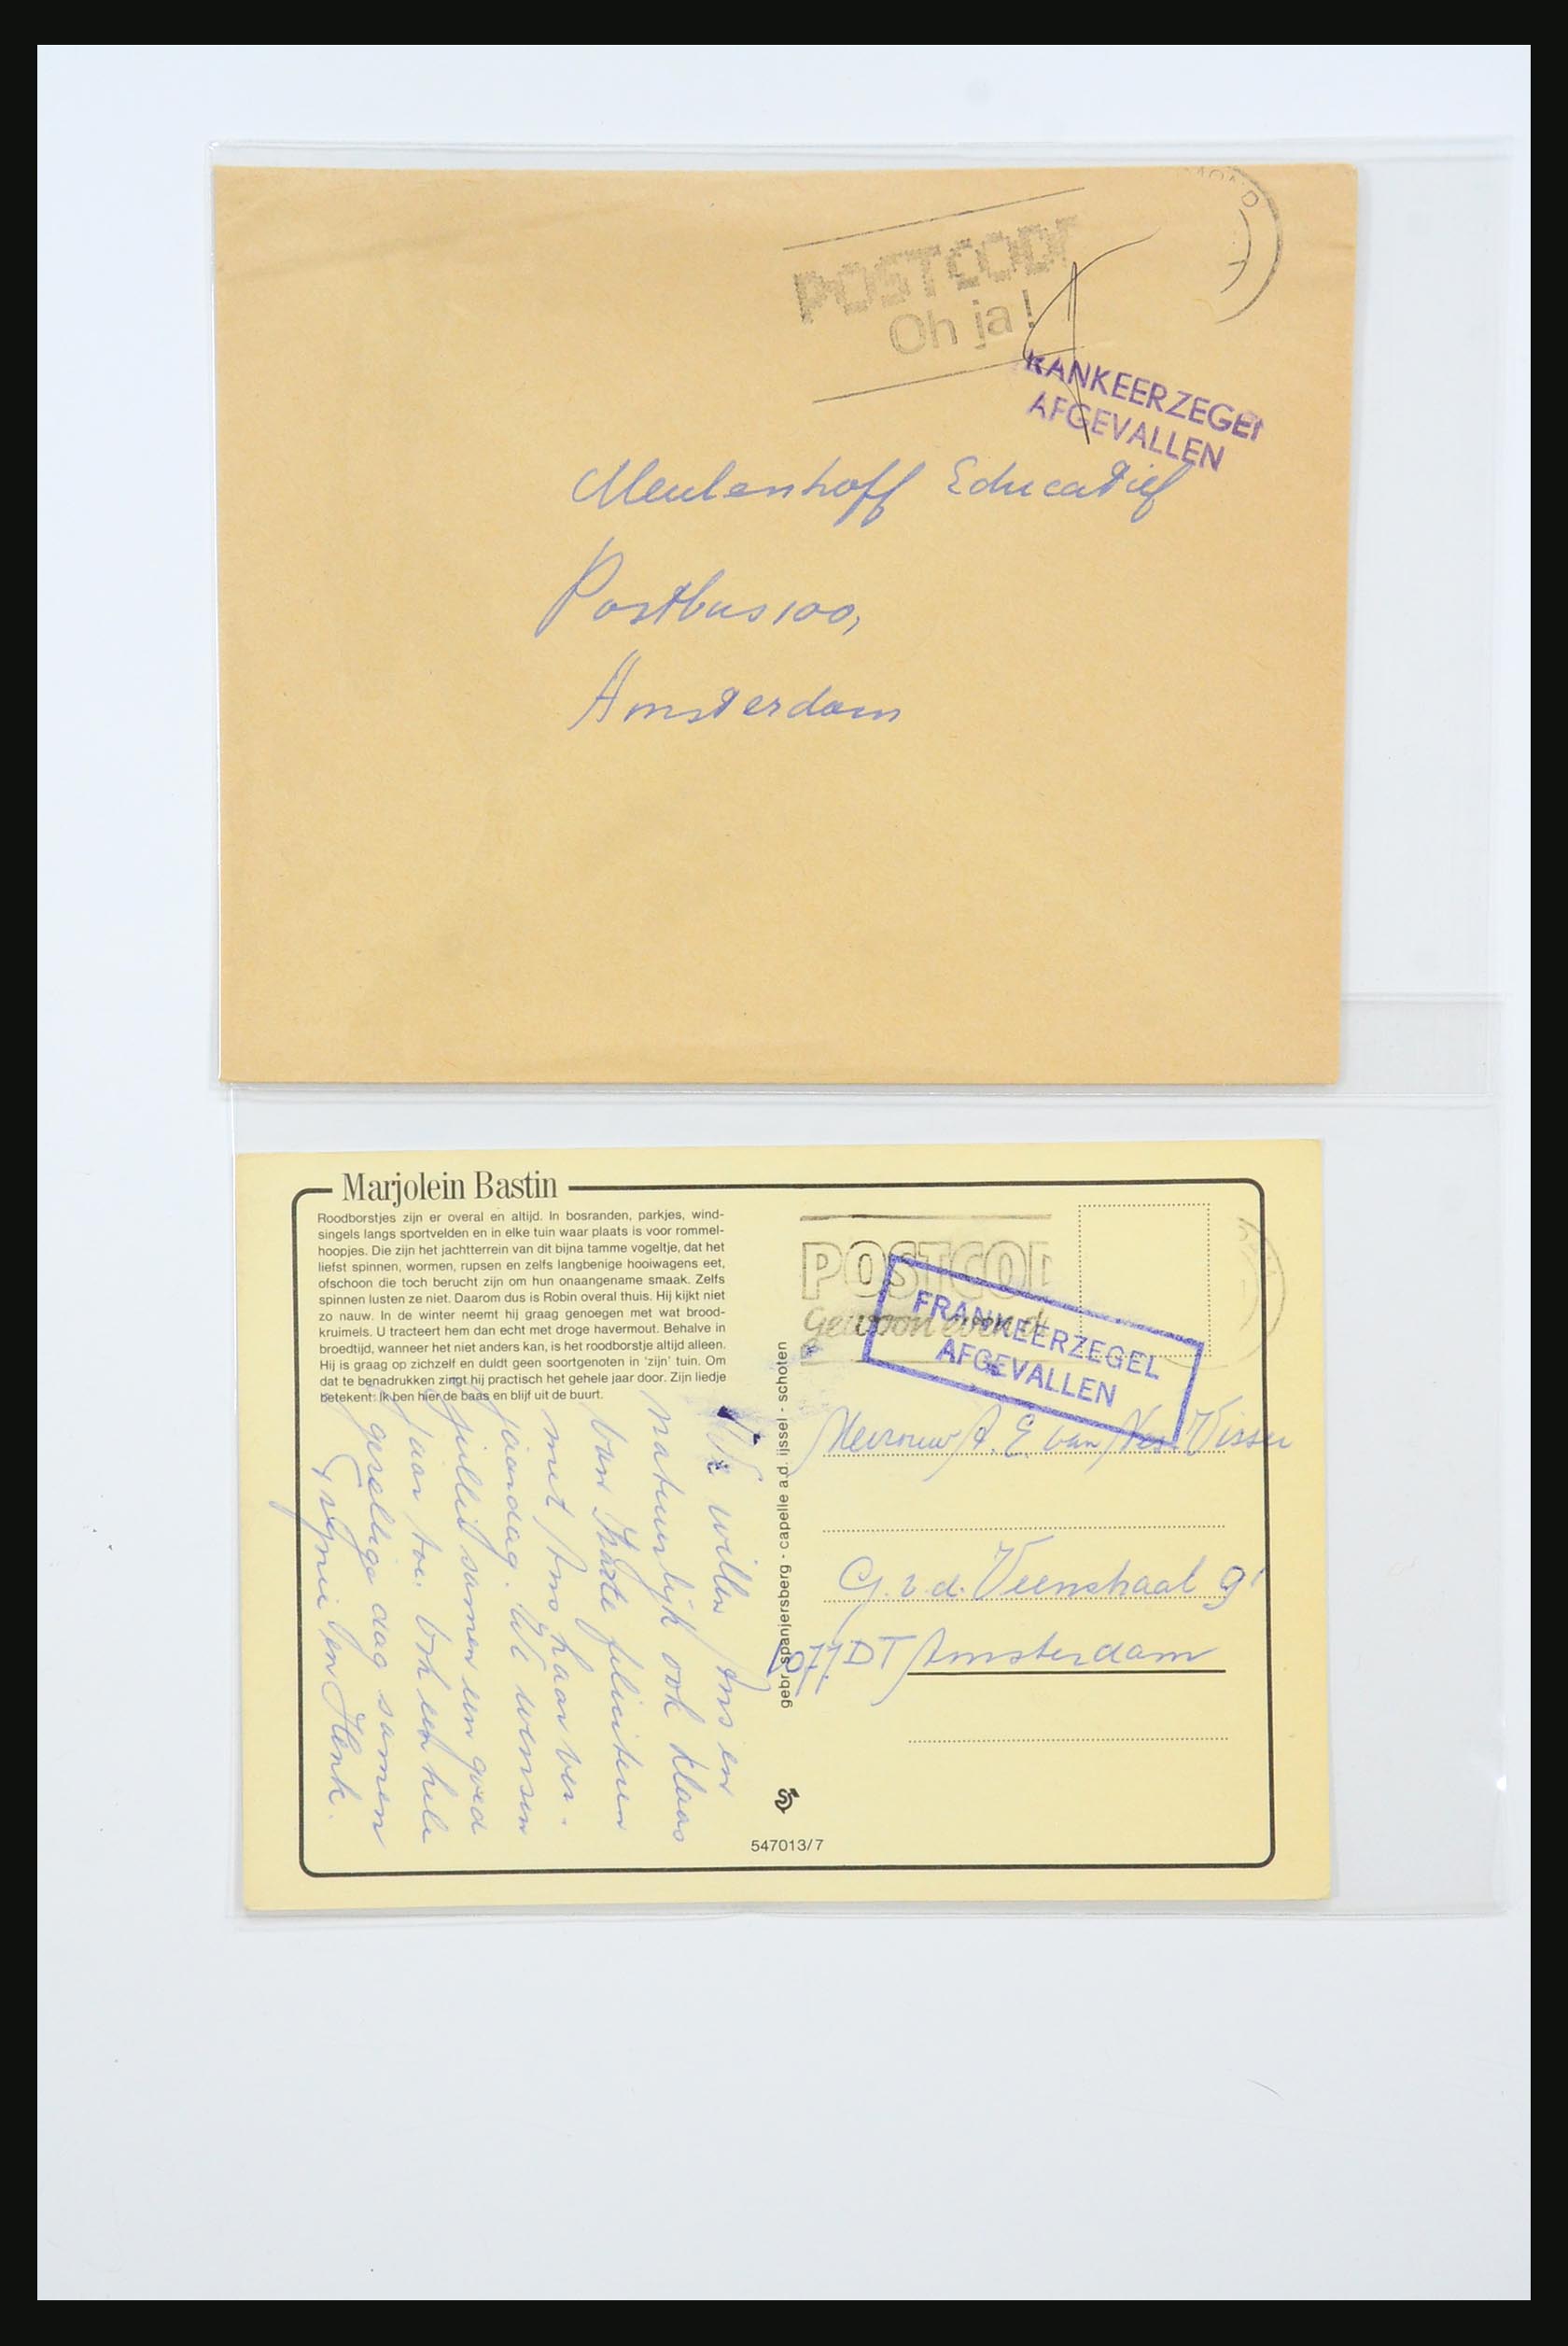 POSTCODE
Oh ja!
RANKEERZEGEL
AFGEVALLEN
Meulenhoff Educatief
Postbus 100,
Amsterdam
Marjolein Bastin
Roodborstjes zijn er overal en altijd. In bosranden, parkjes, wind-
singels langs sportvelden en in elke tuin waar plaats is voor rommel-
hoopjes. Die zijn het jachtterrein van dit bijna tamme vogeltje, dat het
liefst spinnen, wormen, rupsen en zelfs langbenige hooiwagens eet,
ofschoon die toch berucht zijn om hun onaangename smaak. Zelfs
spinnen lusten ze niet. Daarom dus is Robin overal thuis. Hij kijkt niet
zo nauw. In de winter neemt hij graag genoegen met wat brood-
kruimels. U tracteert hem dan echt met droge havermout. Behalve in
broedtijd, wanneer het niet anders kan, is het roodborstje altijd alleen.
Hij is graag op zichzelf en duldt geen soortgenoten in 'zijn' tuin. Om
dat te benadrukken zingt hij practisch het gehele jaar door. Zijn liedje
betekent: Ik ben hier de baas en blijf uit de buurt.
We willen Ans en
natuurlijk ook Klaas
van harte feliciteren
met Ans haar ver-
jaardag. We wensen
jullie samen een goed
jaar toe. Ook een hele
gezellige dag samen
en Henk.
gebr. spanjersberg - capelle a.d. ijssel - schoten
547013/7
POSTCOD
Gewoon even
FRANKEERZEGEL
AFGEVALLEN
Mevrouw A. E. van Nes-Visser
G. v. d. Veenstraat 9'
1077 DT Amsterdam